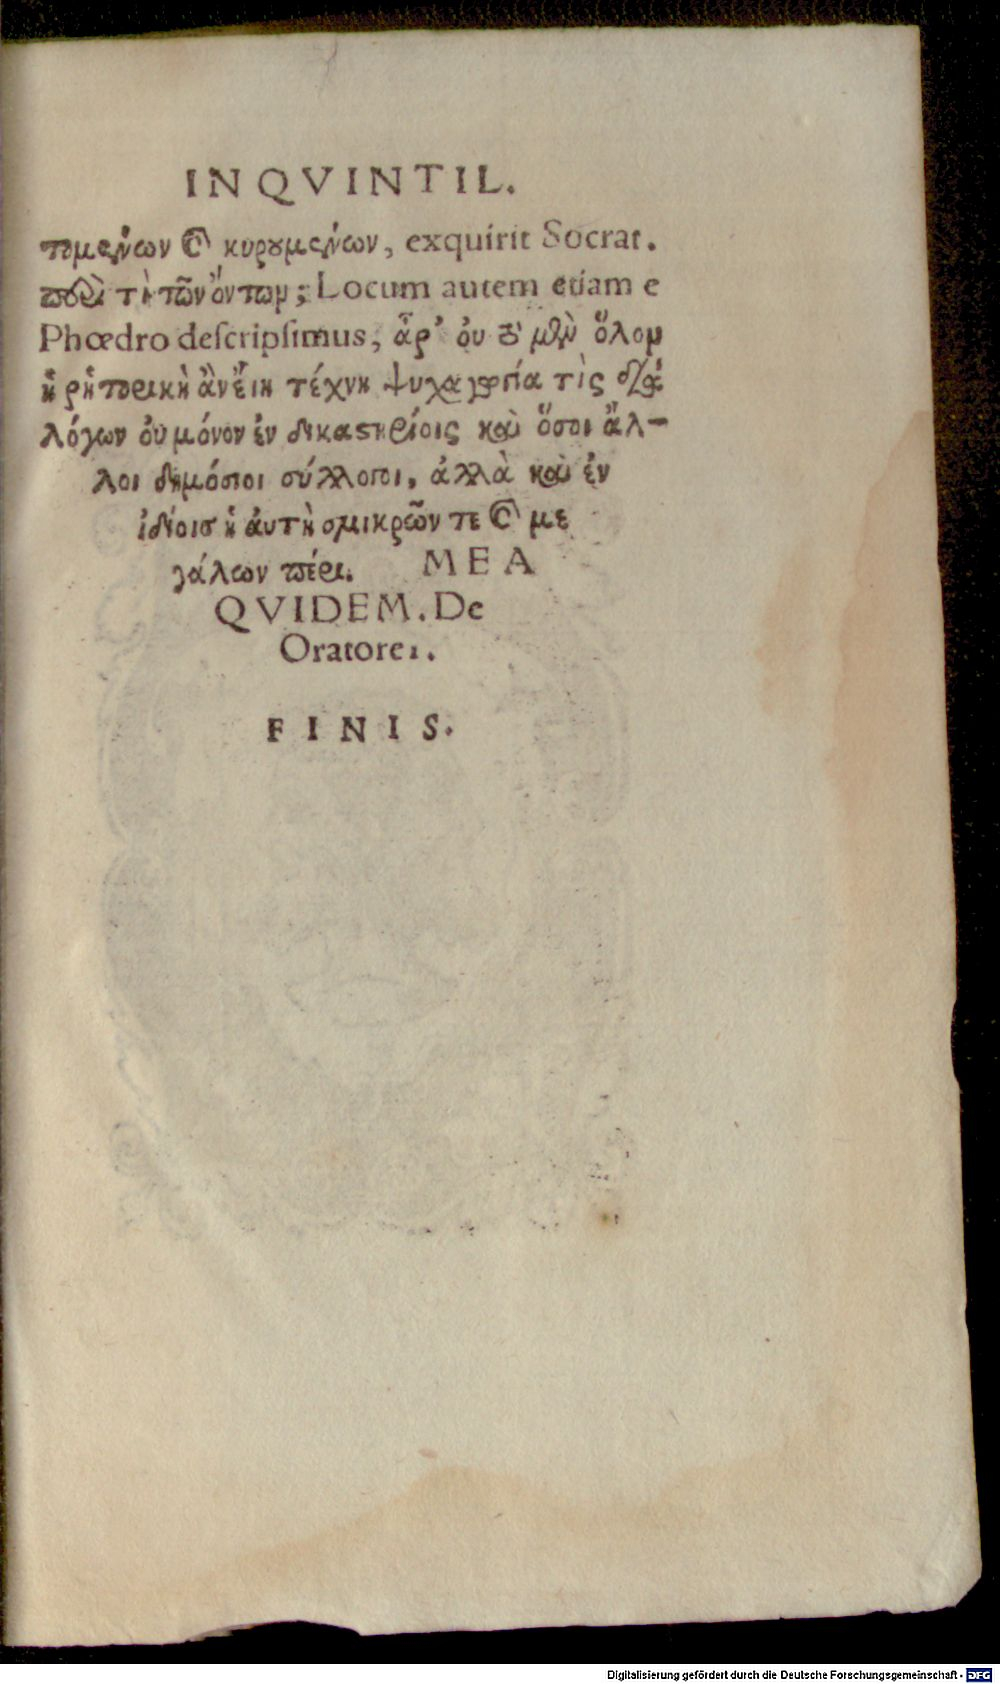 IN QVINTIL.
τομένων καὶ κυρουμένων, exquirit Socrat.
περὶ τὶ τῶν ὄντων; Locum autem etiam e
Phœdro descripsimus, ἆρ' οὐ τὸ μὲν ὅλον
ἡ ῥητορικὴ ἂν εἴη τέχνη ψυχαγωγία τὶς διὰ
λόγων οὐ μόνον ἐν δικαστηρίοις καὶ ὅσοι ἄλ-
λοι δημόσιοι σύλλογοι, ἀλλὰ καὶ ἐν
ἰδίοις ἡ ἀυτὴ σμικρῶν τε καὶ με
γάλων πέρι. MEA
QVIDEM. De
Oratore 1.
FINIS.
Digitalisierung gefördert durch die Deutsche Forschungsgemeinschaft - DFG